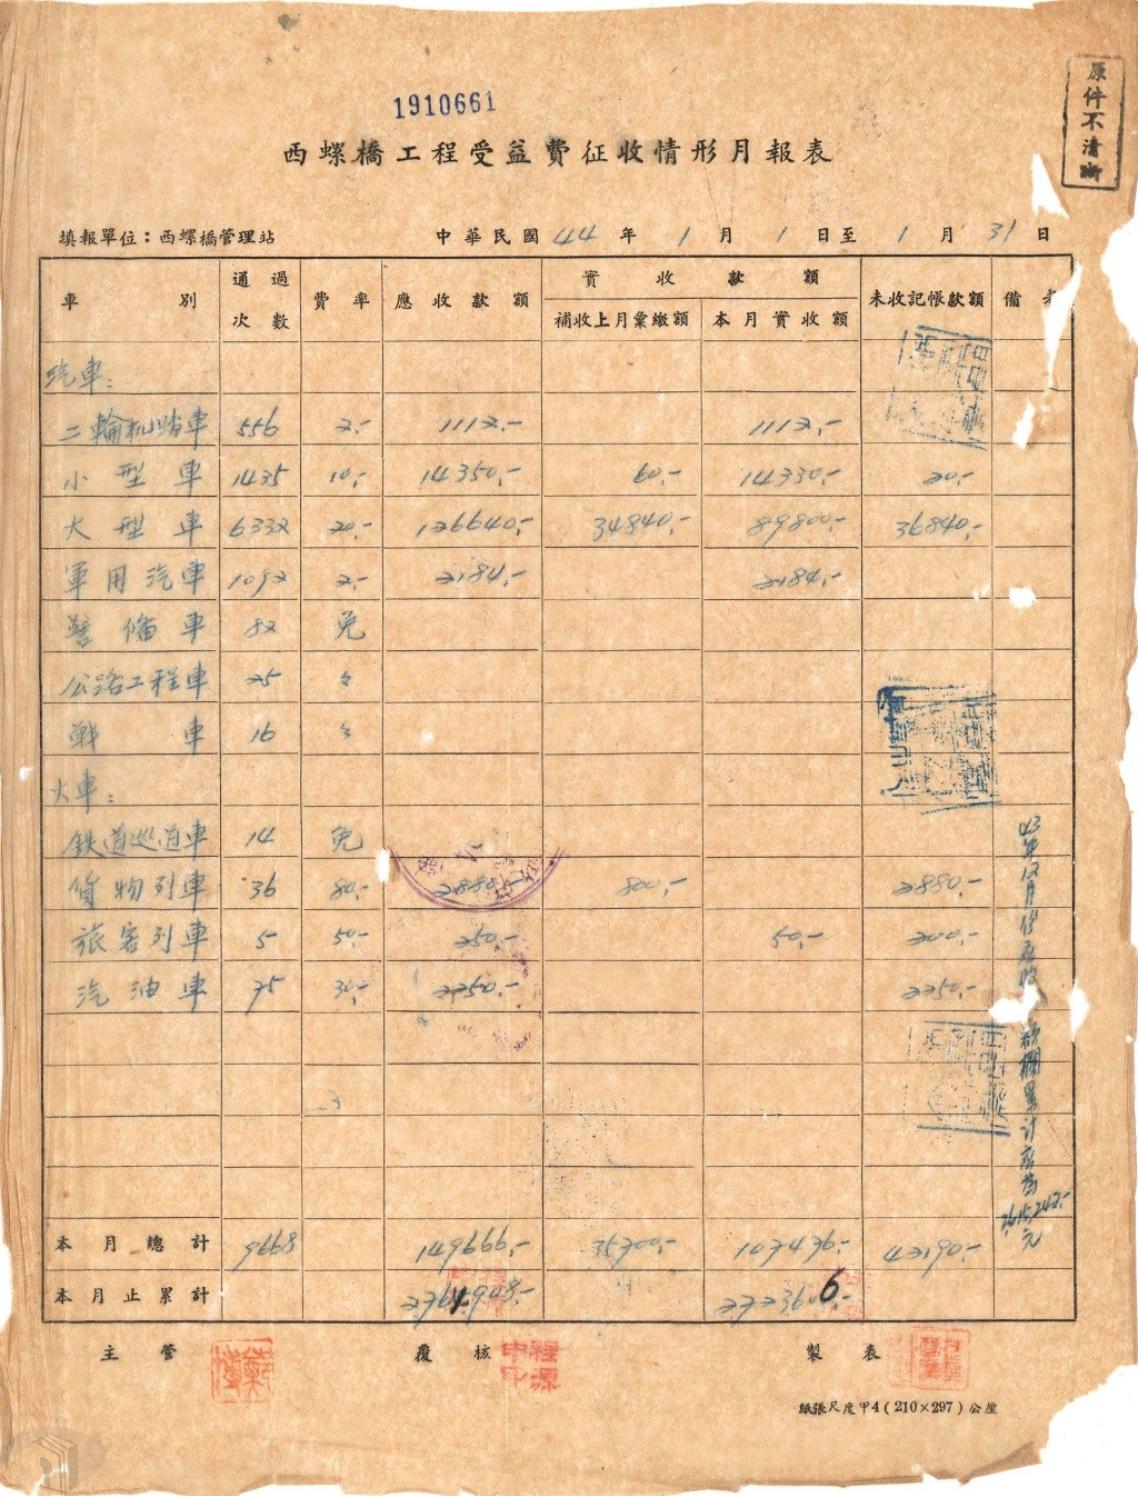 1910661
原件不清晰
西螺橋工程受益費征收情形月報表
填報單位：西螺橋管理站 中華民國44年1月1日至1月31日
車別 通過次數 費率 應收款額 實收款額 未收記帳款額 備考
補收上月彙繳額 本月實收額
汽車：
二輪机踏車 556 2.- 1112.- 1112.-
小型車 1435 10.- 14350.- 60.- 14330.- 20.-
大型車 6332 20.- 126640.- 34840.- 89800.- 36840.-
軍用汽車 1092 2.- 2184.- 2184.-
警備車 82 免
公路工程車 25 〃
戰車 16 〃
火車：
鉄道巡道車 14 免
貨物列車 36 80.- 2880.- 800.- 2880.-
旅客列車 5 50.- 250.- 50.- 200.-
汽油車 75 30.- 2250.- 2250.-
43年12月份應收款欄累計應為2615242.-元
本月總計 9668 149666.- 35700.- 107476.- 42190.-
本月止累計
主管 覆核 製表
程源中印
紙張尺度甲4(210×297)公厘